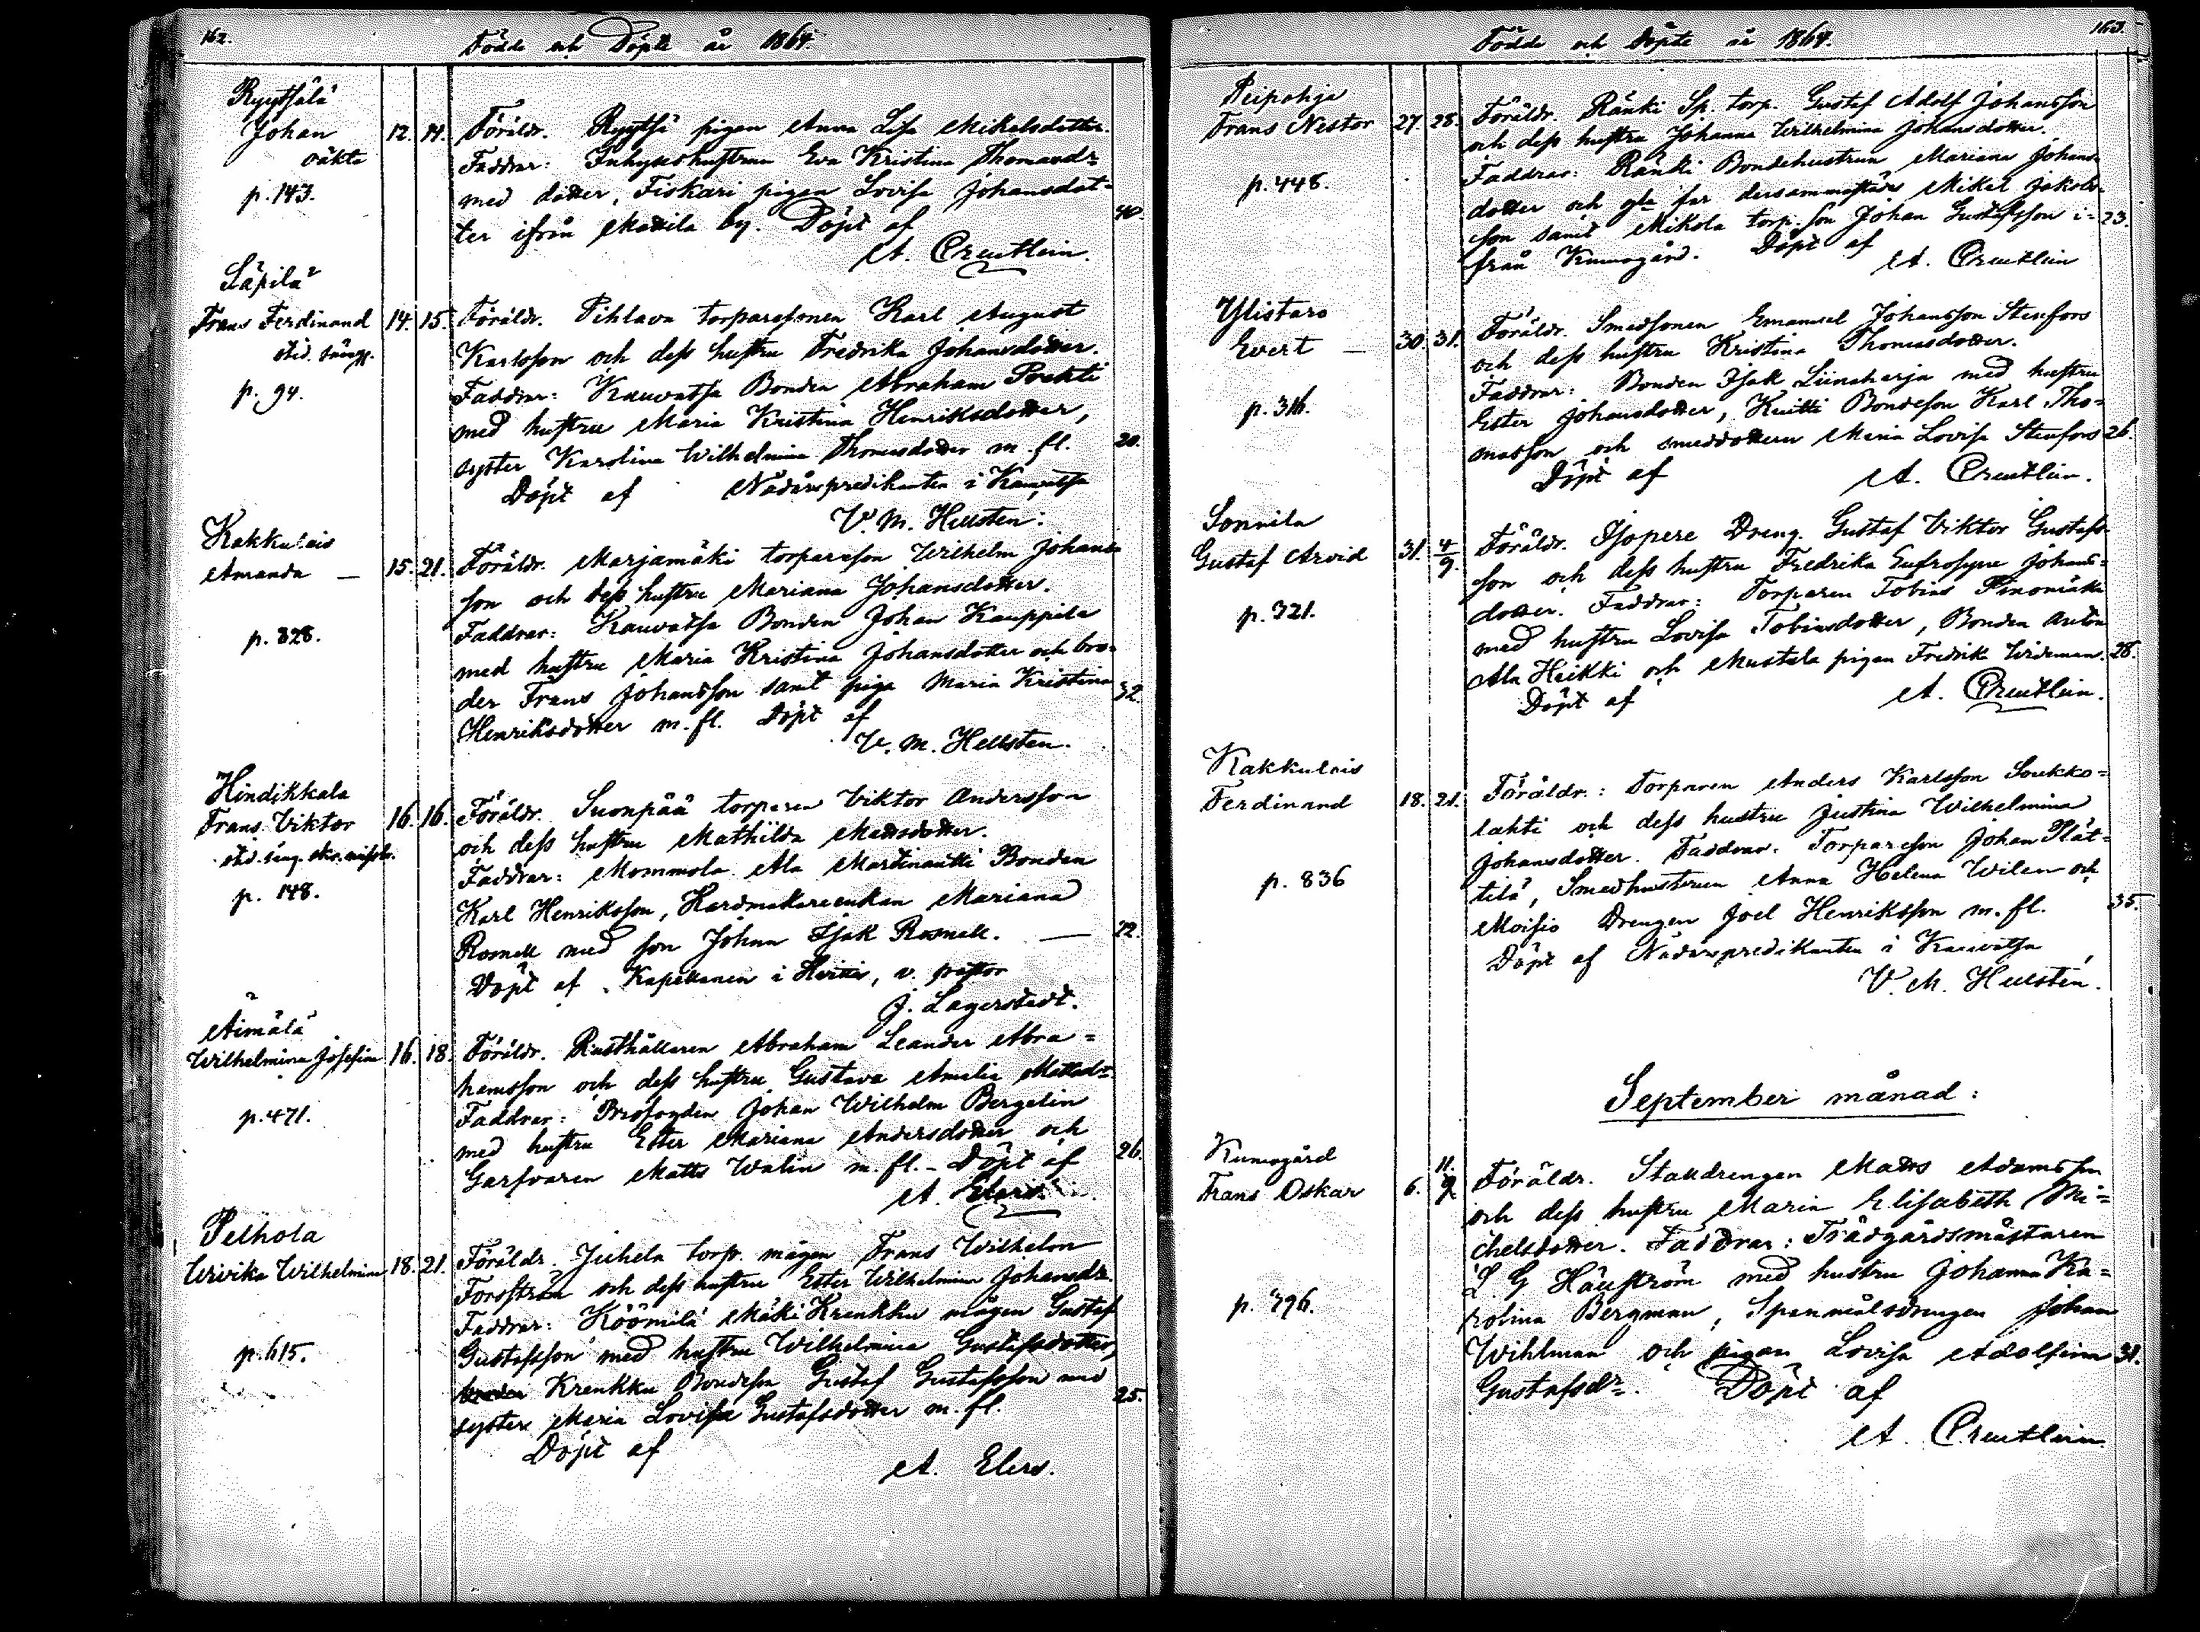 162.
Födde och Döpte år 1864.
Ryytsälä
Johan
oäkta
p. 143.
12. 14.
Föräldr. Ryytsä pigan Anna Lisa Mikelsdotter.
Faddrar: Inhyseshustrun Eva Kristina Thomasdr
med dotter, Fiskari pigan Lovisa Johansdot-
ter ifrån Mattila by. Döpt af
40.
A. Creutlein.
Säpilä
Frans Ferdinand
p. 94.
14. 15.
Föräldr. Pihlava torparesonen Karl August
Karlsson och dess hustru Fredrika Johansdotter.
Faddrar: Kauvatsa Bonden Abraham
med hustru Maria Kristina Henriksdotter,
syster Karolina Wilhelmina Thomasdotter m. fl.
20.
Döpt af Nådårspredikanten i Kauvatsa
V. M. Hellsten.
Kakkulais
Amanda —
p. 828.
15. 21.
Föräldr. Marjamäki torpareson Wilhelm Johans-
son och dess hustru Mariana Johansdotter.
Faddrar: Kauvatsa Bonden Johan Kauppila
med hustru Maria Kristina Johansdotter och bro-
der Frans Johansson samt piga Maria Kristina
32.
Henriksdotter m. fl. Döpt af
V. M. Hellsten.
Hindikkala
Frans Viktor
p. 148.
16. 16.
Föräldr. Suonpää torparen Viktor Andersson
och dess hustru Mathilda Mattsdotter.
Faddrar: Mommola Ala Martinantti Bonden
Karl Henriksson, Kardmakareenkan Mariana
Rosnell med son Johan Isak Rosnell. —
22.
Döpt af Kapellanen i, v. pastor
J. Lagerstedt.
Äimälä
Wilhelmina Josefina
p. 471.
16. 18.
Föräldr. Rusthållaren Abraham Leander Abra-
hamsson och dess hustru Gustava Amalia Mattsdr
Faddrar: Brofogden Johan Wilhelm Bergelin
med hustru Ester Mariana Andersdotter och
Garfvaren Matts Walin m. fl. - Döpt af
26.
A. Elers.
Pelhola
Wivika Wilhelmina
p. 615.
18. 21.
Föräldr. Juhela torp. mågen Frans Wilhelm
Forsström och dess hustru Ester Wilhelmina Johansdr.
Faddrar: Köömilä Mäki Krenkku mågen Gustaf
Gustafsson med hustru Wilhelmina Gustafsdotter,
Krenkku Bondeson Gustaf Gustafsson med
25.
syster Maria Lovisa Gustafsdotter m. fl.
Döpt af
A. Elers.
163.
Födde och Döpte år 1864.
Peipohja
Frans Nestor
p. 448.
27. 28.
Föräldr. Ränki Sp. torp. Gustaf Adolf Johansson
och dess hustru Johanna Wilhelmina Johansdotter.
Faddrar: Ränki Bondehustrun Mariana Johans-
dotter och gla far dersammastädes Mikel Jakobs-
son samt Mikola torp. son Johan Gustafsson i-
23.
från Kumogård. Döpt af
A. Creutlein
Ylistaro
Evert —
p. 316.
30. 31.
Föräldr. Smedsonen Emanuel Johansson Stenfors
och dess hustru Kristina Thomasdotter.
Faddrar: Bonden Isak Liinaharja med hustru
Ester Johansdotter, Knitti Bondeson Karl Tho-
masson och smeddottern Maria Lovisa Stenfors
26.
Döpt af
A. Creutlein.
Sonnila
Gustaf Arvid
p. 321.
31. 4/9.
Föräldr. Isopere Dreng. Gustaf Viktor Gustafs-
son och dess hustru Fredrika Eufrosyne Johans-
dotter. Faddrar: Torparen Tobias Pinomäki
med hustru Lovisa Tobiasdotter, Bonden Anton
Ala Heikki och Mustala pigan Fredrik Wideman.
28.
Döpt af
A. Creutlein.
Kakkulais
Ferdinand
p. 836
18. 21.
Föräldr.: Torparen Anders Karlsson Soukko-
lahti och dess hustru Justina Wilhelmina
Johansdotter. Faddrar: Torpareson Johan Plät-
tilä, Smedhustrun Anna Helena Wilen och
Moisio Drengen Joel Henriksson m. fl.
35.
Döpt af Nådårspredikanten i Kauvatsa
V. M. Hellsten.
September månad:
Kumogård
Frans Oskar
p. 796.
6. 11/9.
Föräldr. Stalldrengen Matts Adamsson
och dess hustru Maria Elisabeth Mi-
chelsdotter. Faddrar: Trädgårdsmästaren
L. G. Häuström med hustru Johanna Ka-
rolina Bergman, Spanmålsdrengen Johan
Wihlman och pigan Lovisa Adolfina
31.
Gustafsdr. Döpt af
A. Creutlein